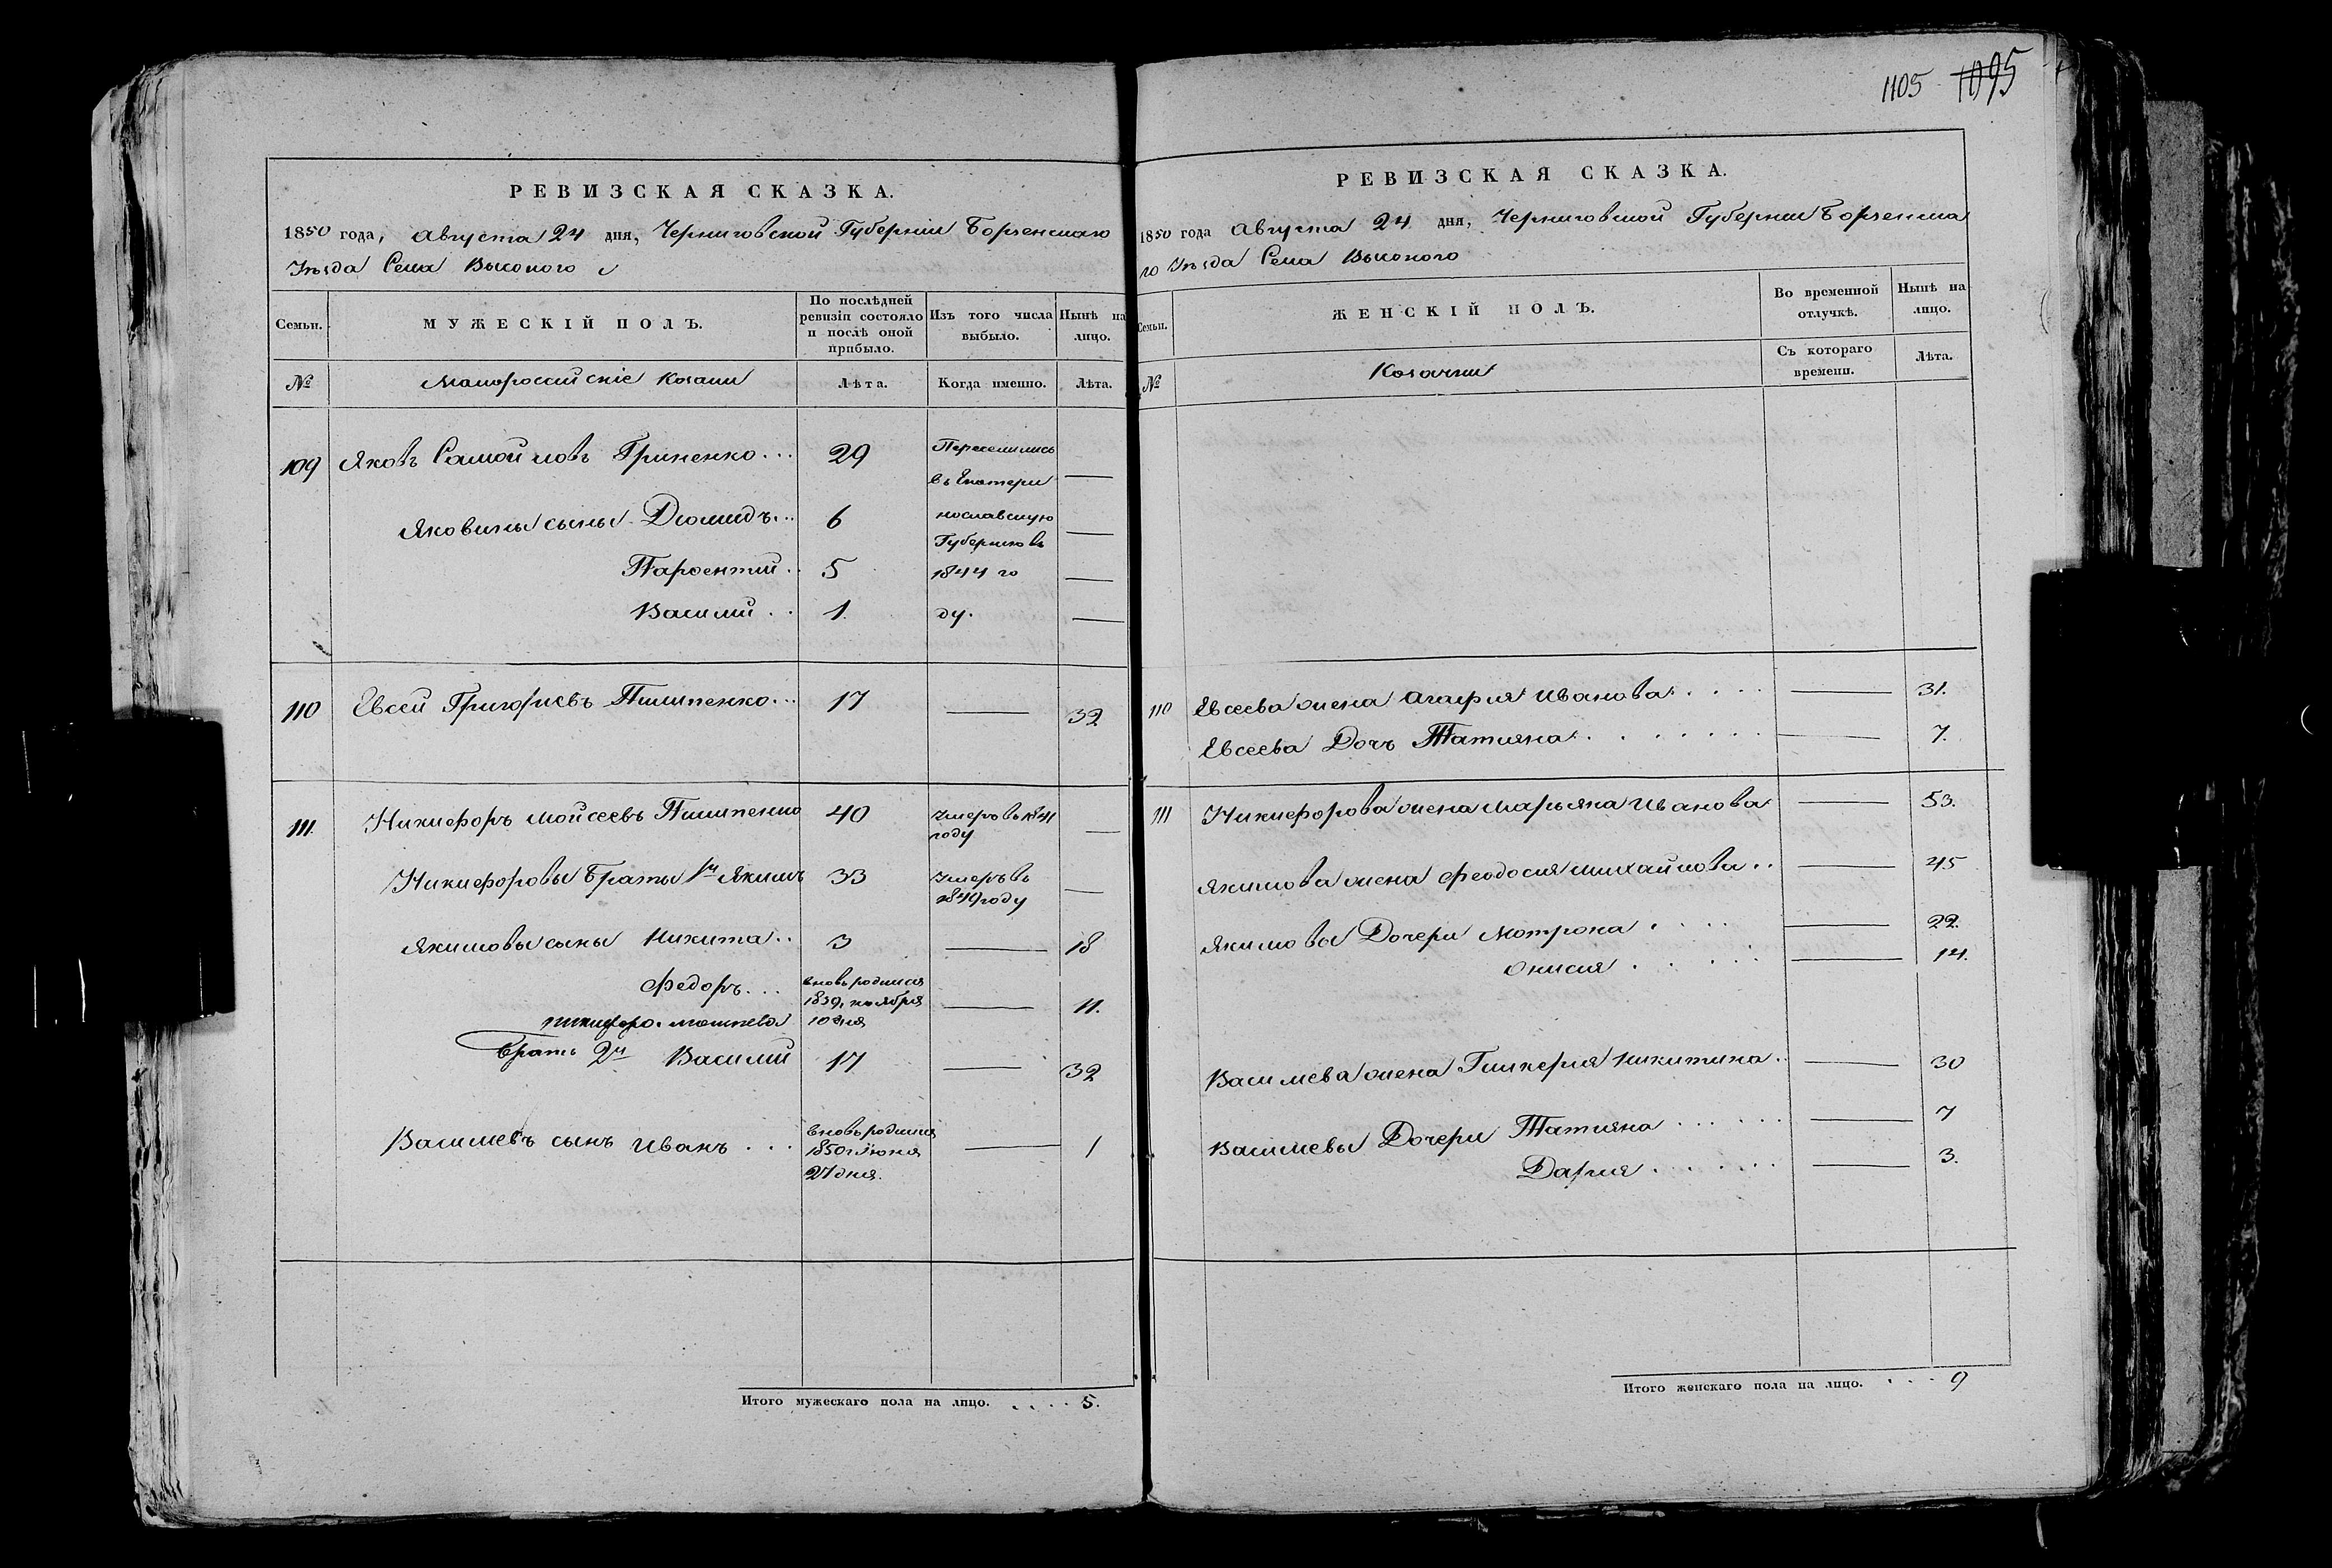 1105 1095
РЕВИЗСКАЯ СКАЗКА.
1850 года, Августа 24 дня, Черниговской Губерніи Борзенскаго
Уѣзда Села Высокого
Семьи.
МУЖЕСКІЙ ПОЛЪ.
По послѣдней ревизіи состояло и послѣ оной прибыло.
Изъ того числа выбыло.
Нынѣ на лицо.
№
Малороссийскіе Козаки
Лѣта.
Когда именно.
Лѣта.
109 Яковъ Самойловъ Гриненко... 29 Переселились
въ Екатери
Яковины сыны Диомидъ... 6 нославскую
Губернию въ
Парфентий.. 5 1844 го
Василий.. 1. ду.
110 Евсей Григориевъ Пилипенко... 17 — 32
111. Никифоръ Мойсеевъ Пилипенко 40 Умеръ въ 1841
году —
Никифоровы Браты 1й Якимъ 33 Умеръ въ
1849 году —
Якимовы сыны Никита.. 3 — 18
Федоръ... вновь родился
1839, ноября
10 дня — 11.
Никифора Моисеева
Братъ 2й Василий 17 — 32
Василиевъ сынъ Иванъ... вновь родился
1850 г. Июня
27 дня. — 1
Итого мужескаго пола на лицо. .... 5.
РЕВИЗСКАЯ СКАЗКА.
1850 года Августа 24 дня, Черниговской Губернии Борзенска
го Уѣзда Села Высокого
Семьи.
ЖЕНСКІЙ ПОЛЪ.
Во временной отлучкѣ.
Нынѣ на лицо.
№
Козачки
Съ котораго времени.
Лѣта.
110 Евсеева жена Агафия Иванова.... — 31.
Евсеева Дочъ Татияна........ — 7.
111 Никифорова жена Марьяна Иванова — 53.
Якимова жена Феодосия Михайлова.. — 45
Якимовы Дочери Мотрона.... — 22.
Онисия..... — 14.
Василиева жена Гликерия Никитина. — 30
Василиевы Дочери Татияна...... — 7
Дария...... — 3.
Итого женскаго пола на лицо. ... 9